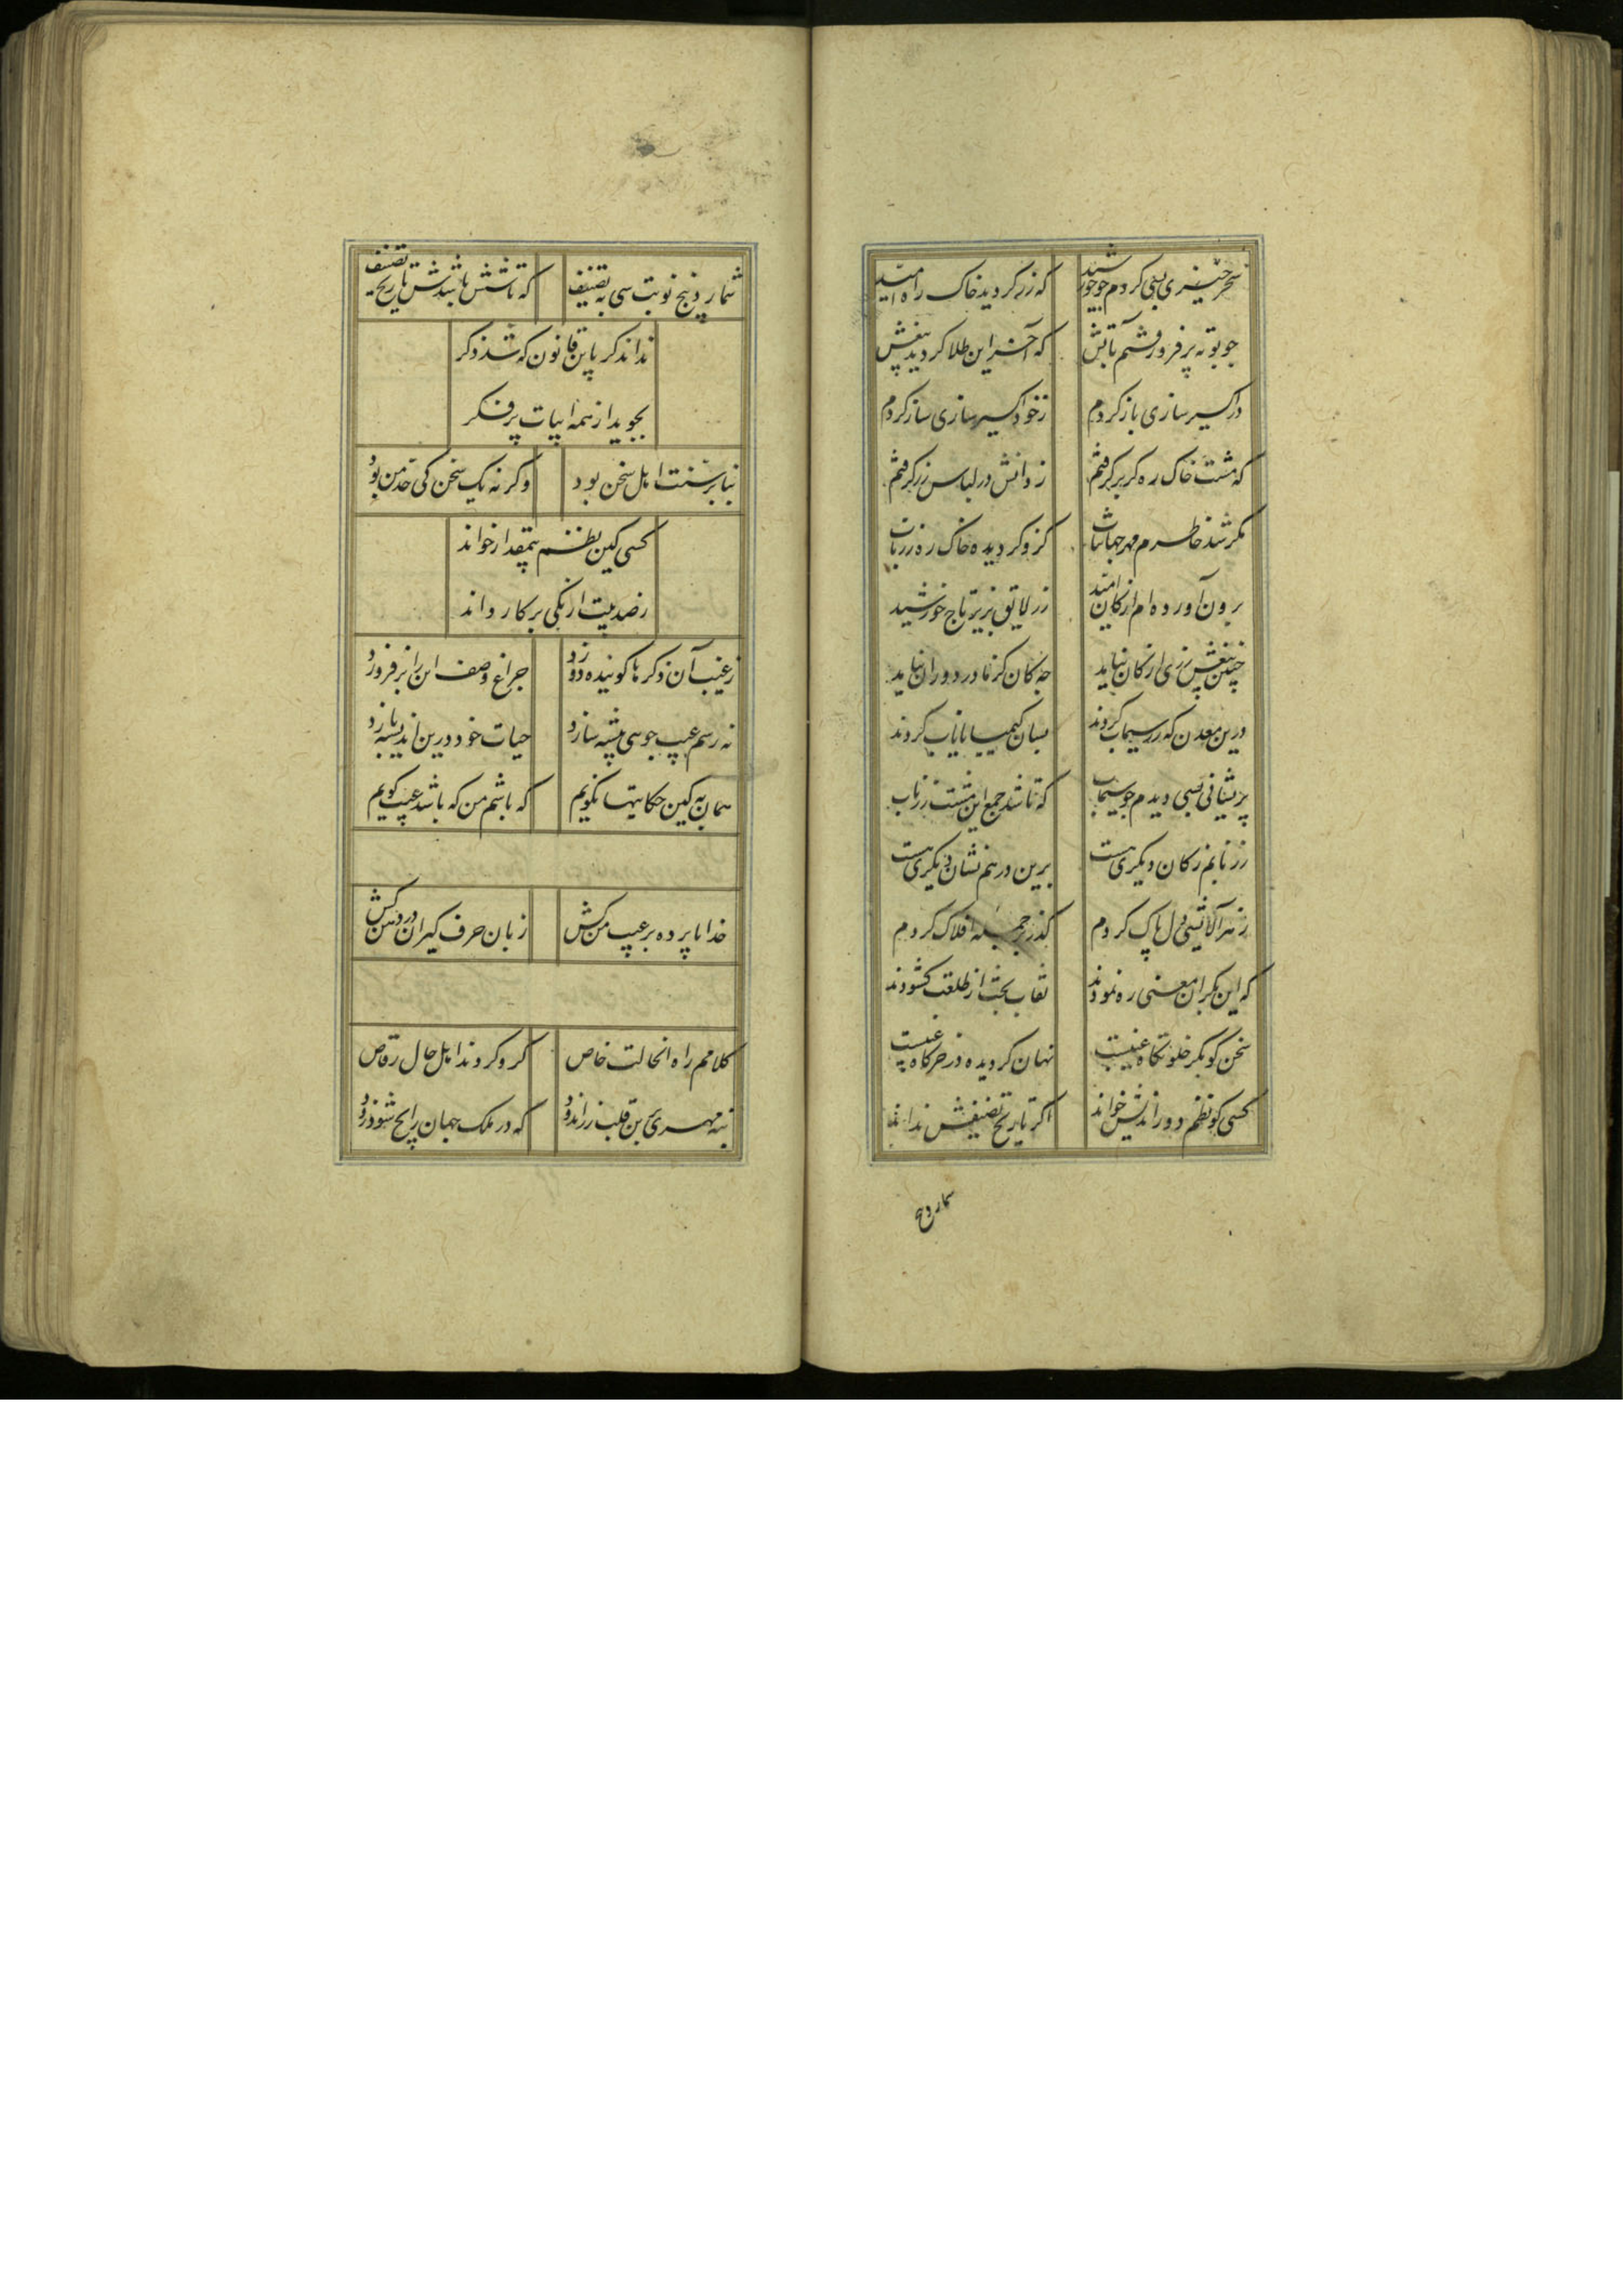 سحرخیزی بسی کردم چو خورشید که زر کردید خاک راه امید
چو بوته بر فروز رفتم بآتش که آخر این طلا کردید بیغش
در اکسیر سازی باز کردم ز خود اکسیر سازی ساز کردم
که مشت خاک ره کر بر کرفتم ز دانش در لباس زر کرفتم
مکر شد خاطرم مهر جهانتاب کزو کردیده خاک ره زر ناب
برون آورده‌ام از کان امید زر لایق بزیر تاج خورشید
چنین بیغش زری از کان نیاید چه کان کز مادر دوران نیاید
درین معدن که زر سیماب کردند بسان کیمیا نایاب کردند
پریشانی بسی دیدم چو سیماب که تا شد جمع این مشت زر ناب
زر نابم ز کان دیکری هست برین درهم نشان دیکری هست
ز هر آلایشی دل پاک کردم کذر بر جمله افلاک کردم
که این بکران معنی ره نمودند نقاب بخت از طلعت کشودند
سخن کو بکر خلوتکاه غیبست نهان کردیده در خرکاه غیبست
کسی کو نظم دوراندیش خواند اکر تاریخ تصنیفش نداند
شمارد پنج نوبت سی به تصنیف که تا شش باشدش تاریخ تصنیف
نداند کر باین قانون که شد ذکر
بجوید از همه ابیات پر فکر
بنا بر سنت اهل سخن بود وکر نه یک سخن کی حد من بود
کسی کین نظم بیمقدار خواند
ز صد بیت ار یکی بر کار داند
ز عیب آن ذکرها کوینده دوزد چراغ وصف این را بر فروزد
نه رسم عیب جویی پیشه سازد حیات خود درین اندیشه بازد
همان به کین حکایتها نکویم که باشم من که باشد عیب کویم
خدایا پرده بر عیب من کش زبان حرف کیران در دهن کش
کلامم را ده آنحالت خاص کزو کردند اهل حال رقاص
بنه مهری برین قلب زراندود که در ملک جهان رایج شود زود
شمارد